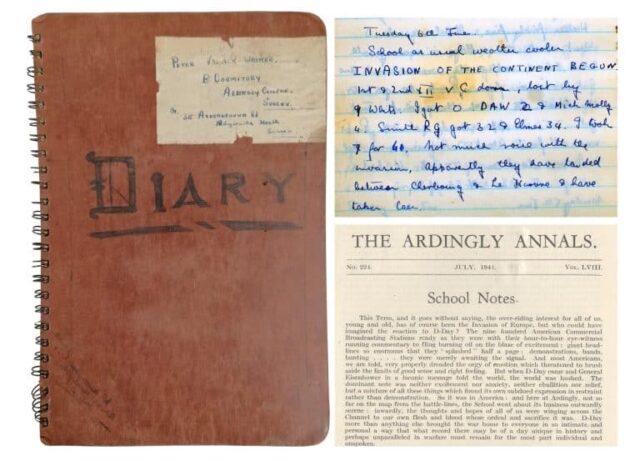 PETER
B DORMITORY
ARDINGLY COLLEGE,
SUSSEX.
DIARY
Tuesday 6th June.
School as usual weather cooler
INVASION OF THE CONTINENT BEGUN
1st & 2nd XII v C dorm, lost by
9 wkts. I got 0. DAW 2 & Mich
4. Smith RG got 32 & Elmes 34. I took
7 for 60. Not much noise with the
invasion, apparently they have landed
between Cherbourg & Le Havre & have
taken Caen.
THE ARDINGLY ANNALS.
No. 224. JULY, 1941. VOL. LVIII.
School Notes.
This Term, and it goes without saying, the over-riding interest for all of us,
young and old, has of course been the Invasion of Europe, but who could have
imagined the reaction to D-Day? The nine hundred American Commercial
Broadcasting Stations ready as they were with their hour-to-hour eye-witness
running commentary to fling burning oil on the blaze of excitement: giant head-
lines so enormous that they "splashed" half a page: demonstrations, bands,
bunting . . . . they were merely awaiting the signal. And most Americans,
we are told, very properly dreaded the orgy of emotion which threatened to brush
aside the limits of good sense and right feeling. But when D-Day came and General
Eisenhower in a laconic message told the world, the world was hushed. The
dominant note was neither excitement nor anxiety, neither ebullition nor relief,
but a mixture of all these things which found its own subdued expression in restraint
rather than demonstration. So it was in America: and here at Ardingly, not so
far on the map from the battle-lines, the School went about its business outwardly
serene: inwardly, the thoughts and hopes of all of us were winging across the
Channel to our own flesh and blood whose ordeal and sacrifice it was. D-Day
more than anything else brought the war home to everyone in so intimate and
personal a way that what record there may be of a day unique in history and
perhaps unparalleled in warfare must remain for the most part individual and
unspoken.